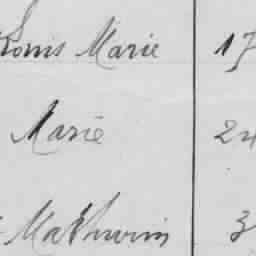 Louis Marie 17
Marie 24
Mathurin 3